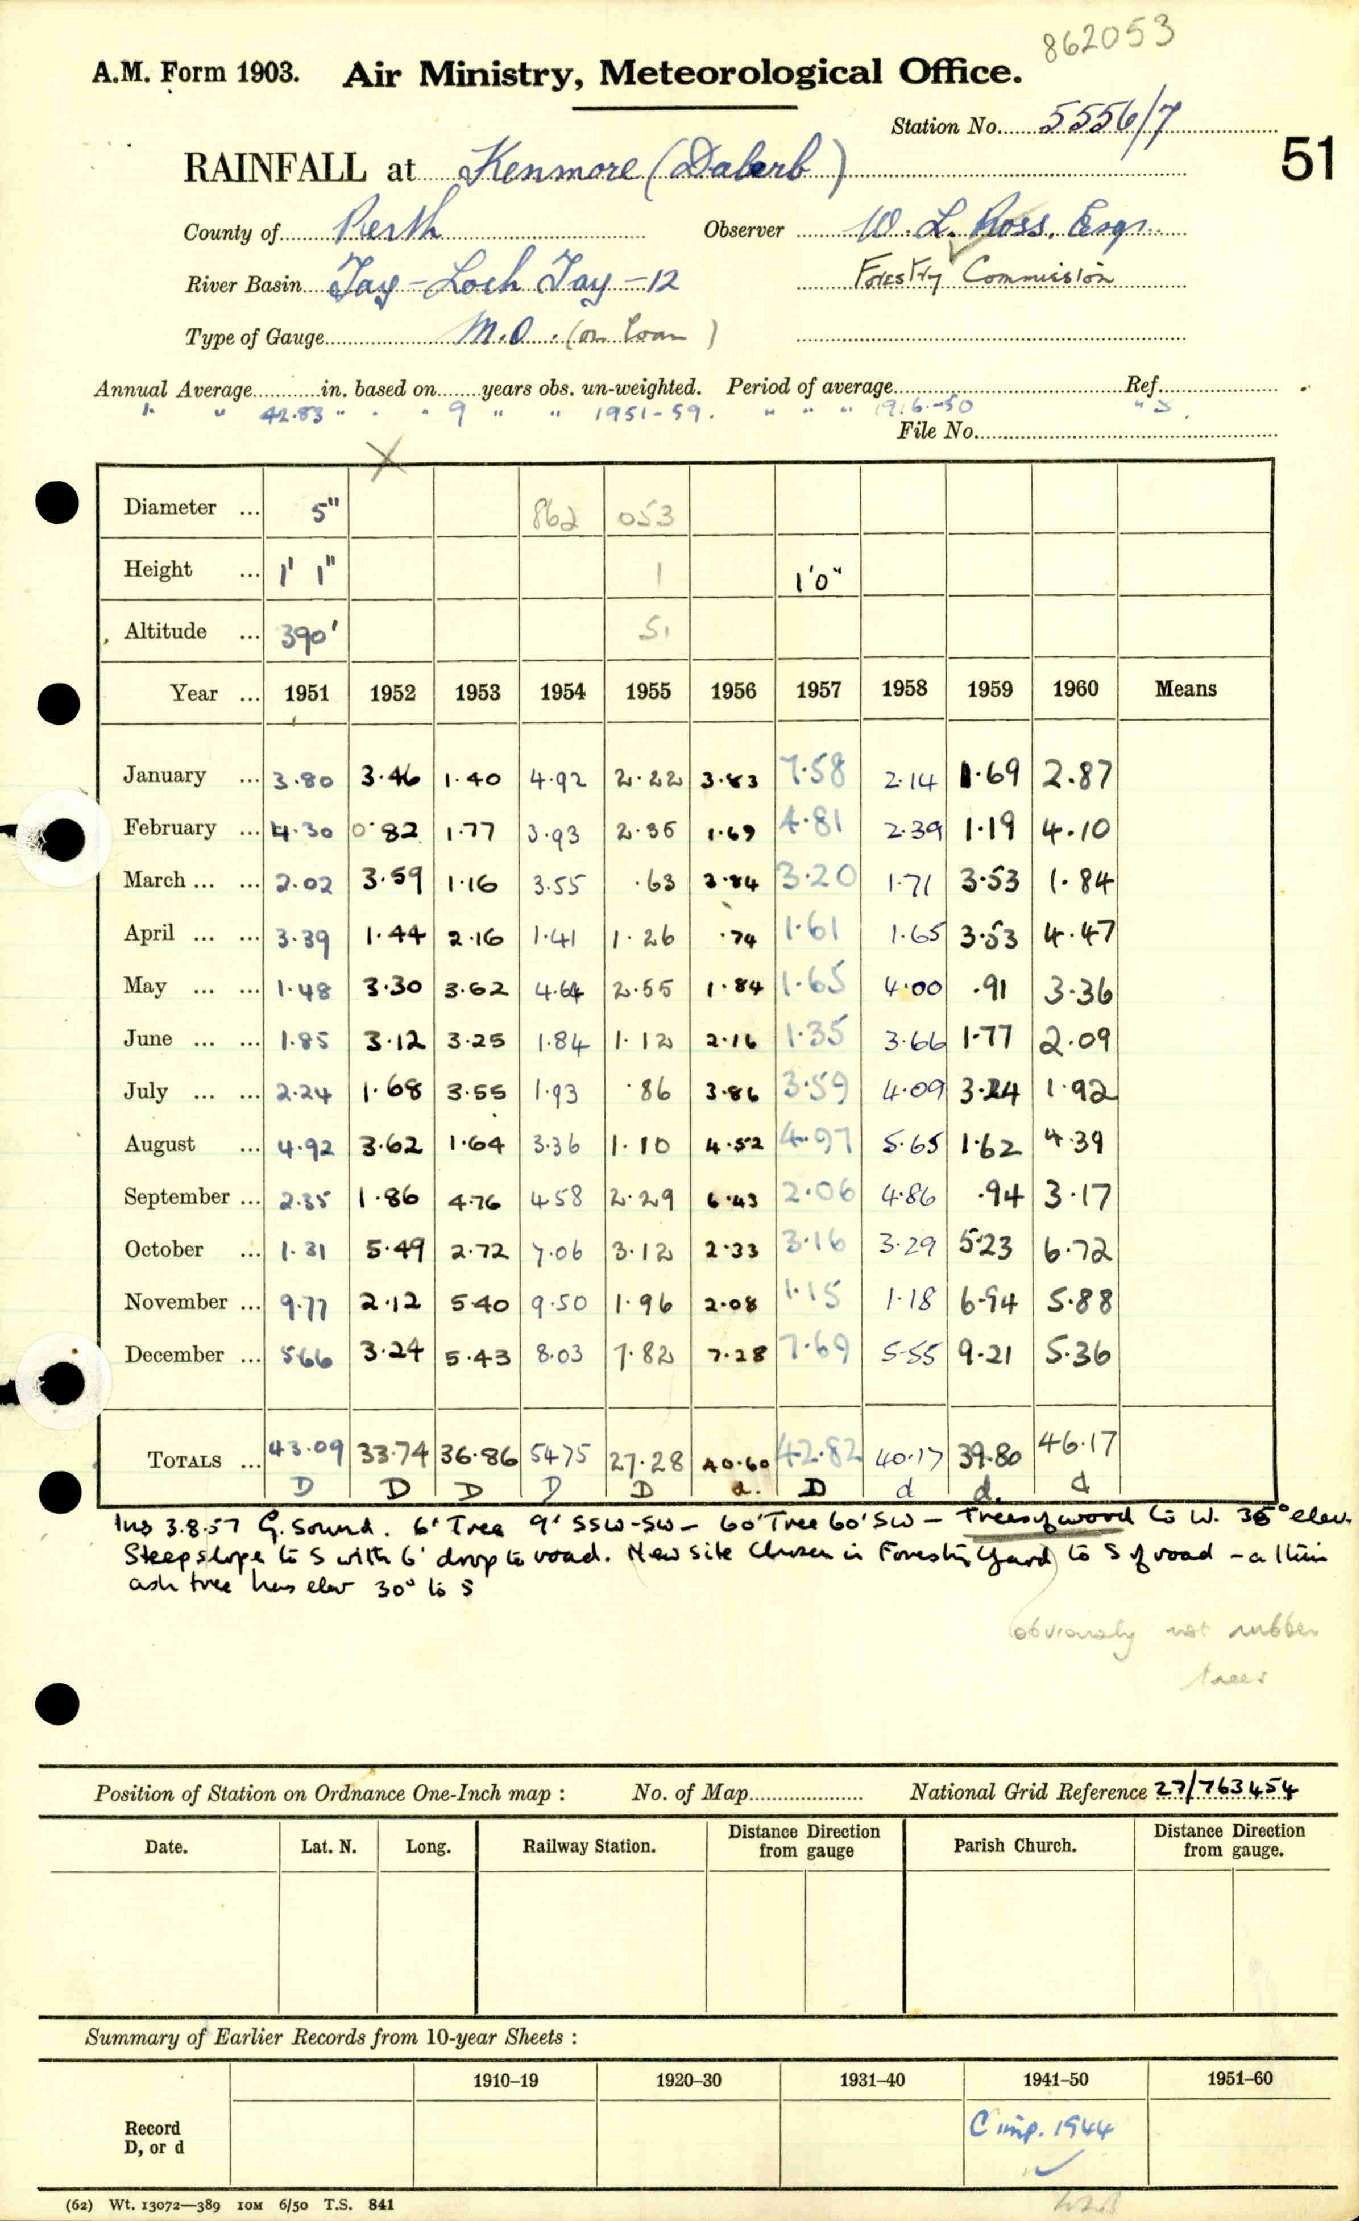 862053
A.M. Form 1903. Air Ministry, Meteorological Office.
Station No. 5556/7
51
RAINFALL at Kenmore (Dalerb)
County of Perth Observer W. L. Ross. Esqr.
River Basin Tay - Loch Tay - 12 Forestry Commission
Type of Gauge M.O. (on loan)
Annual Average in. based on years obs. un-weighted. Period of average Ref.
" " 42.83 " " " 9 " " 1951-59. " " " 1916-50 " S.
File No.
X
Diameter ... 5" 862 053
Height ... 1' 1" 1 1'0"
Altitude ... 390' 51
Year ... 1951 1952 1953 1954 1955 1956 1957 1958 1959 1960 Means
January ... 3.80 3.46 1.40 4.92 2.22 3.83 7.58 2.14 1.69 2.87
February ... 4.30 0.82 1.77 3.93 2.35 1.69 4.81 2.39 1.19 4.10
March ... ... 2.02 3.59 1.16 3.55 .63 3.84 3.20 1.71 3.53 1.84
April ... ... 3.39 1.44 2.16 1.41 1.26 .74 1.61 1.65 3.53 4.47
May ... ... 1.48 3.30 3.62 4.64 2.55 1.84 1.65 4.00 .91 3.36
June ... ... 1.85 3.12 3.25 1.84 1.12 2.16 1.35 3.66 1.77 2.09
July ... ... 2.24 1.68 3.55 1.93 .86 3.86 3.59 4.09 3.24 1.92
August ... 4.92 3.62 1.64 3.36 1.10 4.52 4.97 5.65 1.62 4.39
September ... 2.35 1.86 4.76 4.58 2.29 6.43 2.06 4.86 .94 3.17
October ... 1.31 5.49 2.72 7.06 3.12 2.33 3.16 3.29 5.23 6.72
November ... 9.77 2.12 5.40 9.50 1.96 2.08 1.15 1.18 6.94 5.88
December ... 5.66 3.24 5.43 8.03 7.82 7.28 7.69 5.55 9.21 5.36
TOTALS ... 43.09 33.74 36.86 54.75 27.28 40.60 42.82 40.17 39.80 46.17
D D D D D a. D d d. d
Ins 3.8.57 G. Sound. 6' Tree 9' SSW-SW - 60' Tree 60' SW - Trees of wood to W. 35° elev.
Steep slope to S with 6' drop to road. New site chosen in Forestry Yard to S of road - a thin
ash tree has elev 30° to S
obviously not rubber
trees
Position of Station on Ordnance One-Inch map : No. of Map National Grid Reference 27/763454
Date. Lat. N. Long. Railway Station. Distance Direction from gauge Parish Church. Distance Direction from gauge.
Summary of Earlier Records from 10-year Sheets :
1910–19 1920–30 1931–40 1941–50 1951–60
Record
D, or d
C imp. 1944
(62) Wt. 13072—389 10M 6/50 T.S. 841